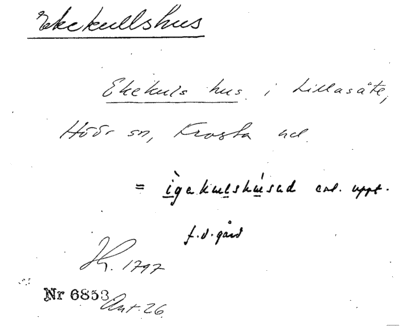 Ekekullshus
Ekekuls hus i Lillasäte,
Höör sn, Frosta hd.
= ìgekulshúsad enl. uppt.
f.d. gård
Jh. 1797
Nr 6853 Ant. 26.